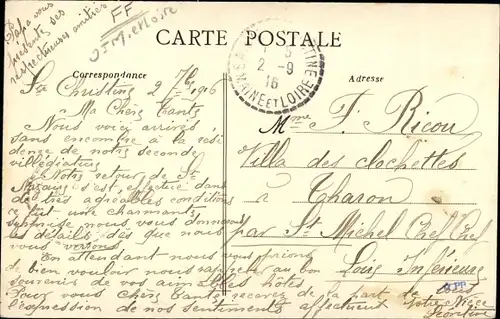 Papa vous
présente ses
respectueuses amitiés
FF
CARTE POSTALE
Correspondance
Adresse
2 - 9
16
MAINE ET LOIRE
Ste Christine 2 7bre 1916
Ma Chère Tante
Nous voici arrivés,
sans encombre à la rési
dence de notre seconde
villégiature.
Notre retour de St
Nazaire s'est effectué dans
de très agréables conditions
ce fut une charmante
nous vous donnerons
les détails dès que nous
vous verrons.
En attendant nous vous prions
de bien vouloir nous rappeler au bon
souvenir de vos aimables hôtes
Pour vous chère Tante recevez de la part de
l'expression de nos sentiments affectueux
Votre Nièce
Mme F. Ricou
Villa des clochettes
à Tharon
par St Michel Chef Chef
Loire Inférieure